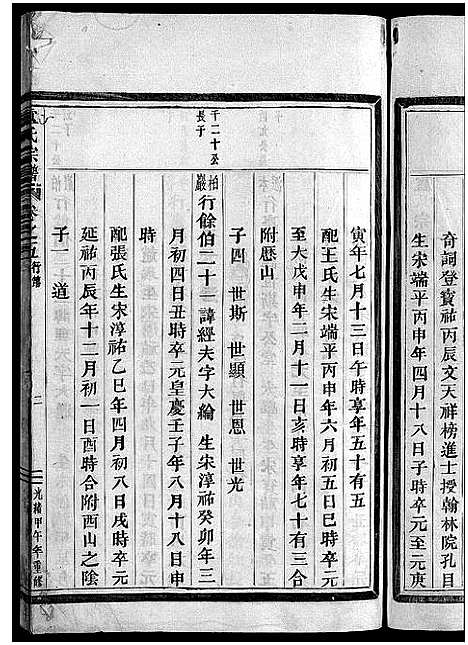 奇詞登寶祐丙辰文天祥榜進士授翰林院孔目
生宋端平丙申年四月十八日子時卒元至元庚
寅年七月十三日午時享年五十有五
配王氏生宋端平丙申年六月初五日巳時卒元
至大戊申年二月十一日亥時享年七十有三合
附歷山
子四 世斯 世顯 世恩 世光
千二十公
長子
柏巖行餘伯二十一諱經夫字大綸 生宋淳祐癸卯年三
月初四日丑時卒元皇慶壬子年八月十八日申
時
配張氏生宋淳祐乙巳年四月初八日戌時卒元
延祐丙辰年十二月初一日酉時合附西山之陰
子一 道
氏宗譜
卷之五行傳
二
光緒甲午年重修